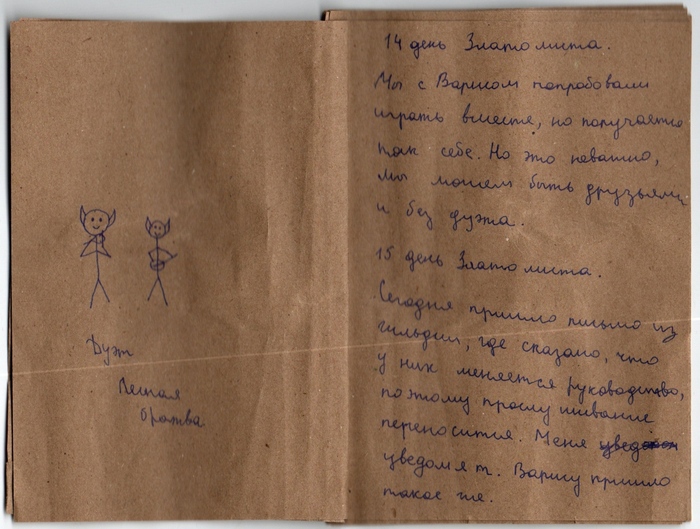 Дуэт
Лесная
братва
14 день Златолиста.
Мы с Варисом попробовали
играть вместе, но получается
так себе. Но это неважно,
мы можем быть друзьями
и без дуэта.
15 день Златолиста.
Сегодня пришло письмо из
гильдии, где сказано, что
у них меняется руководство,
поэтому прослушивание
переносится. Меня
уведомят. Варису пришло
такое же.